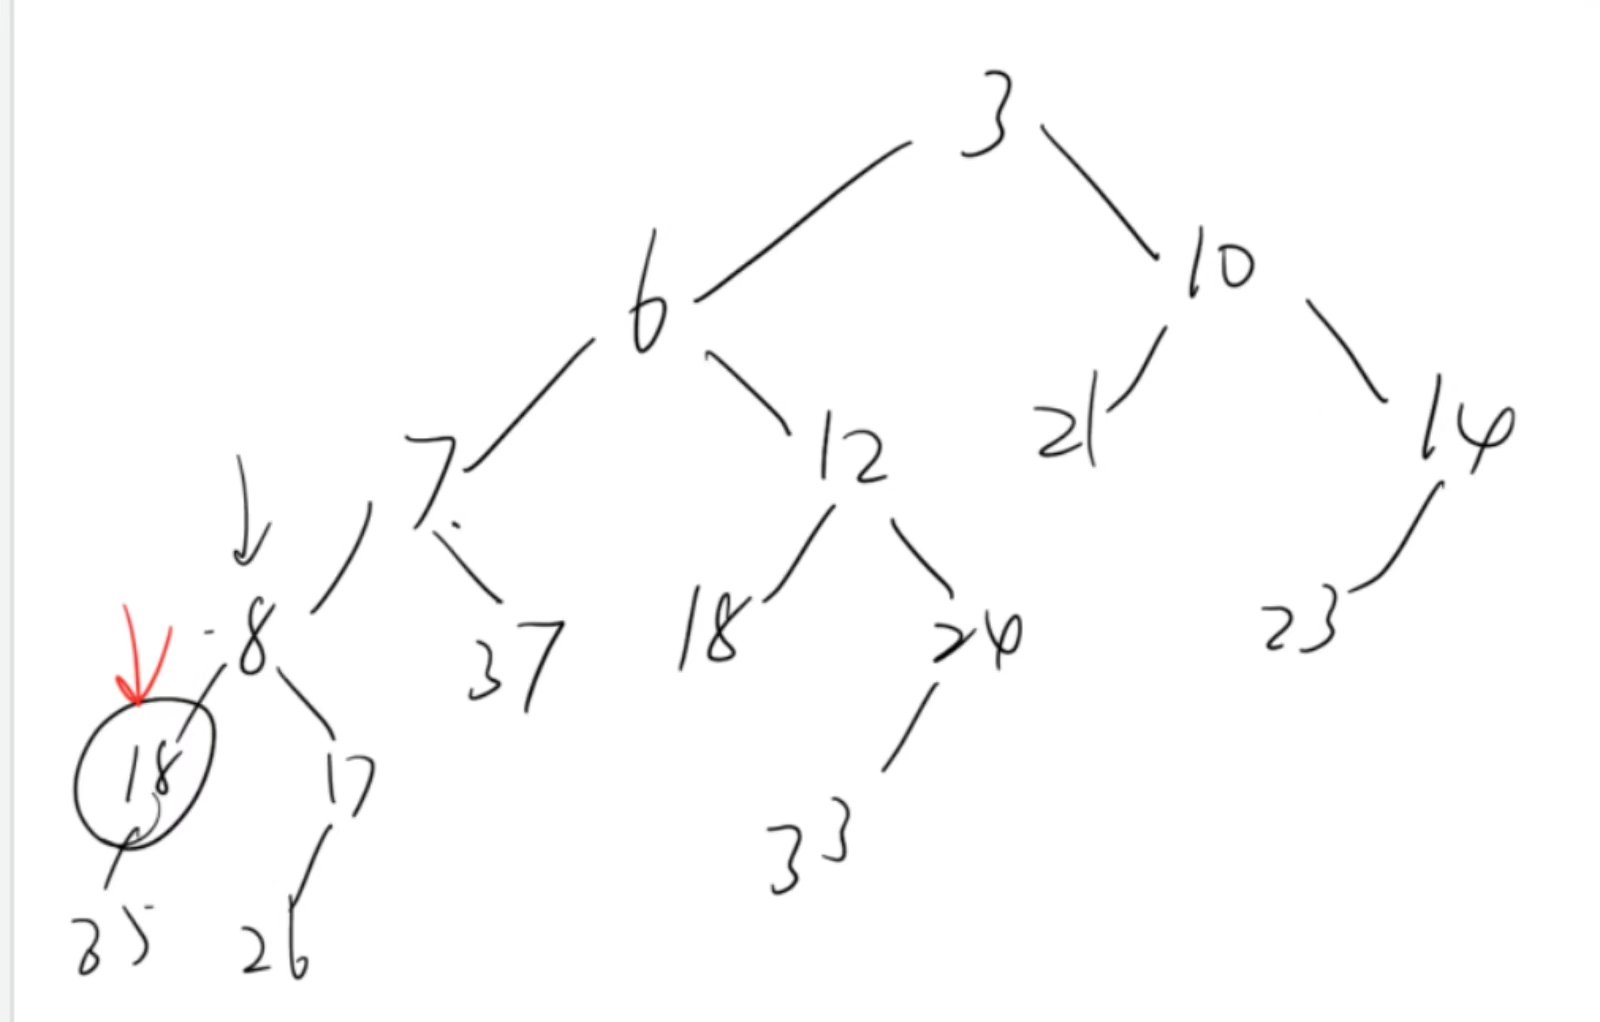 3
6 10
7 12 21 14
8 37 18 24 23
18 17 33
35 26